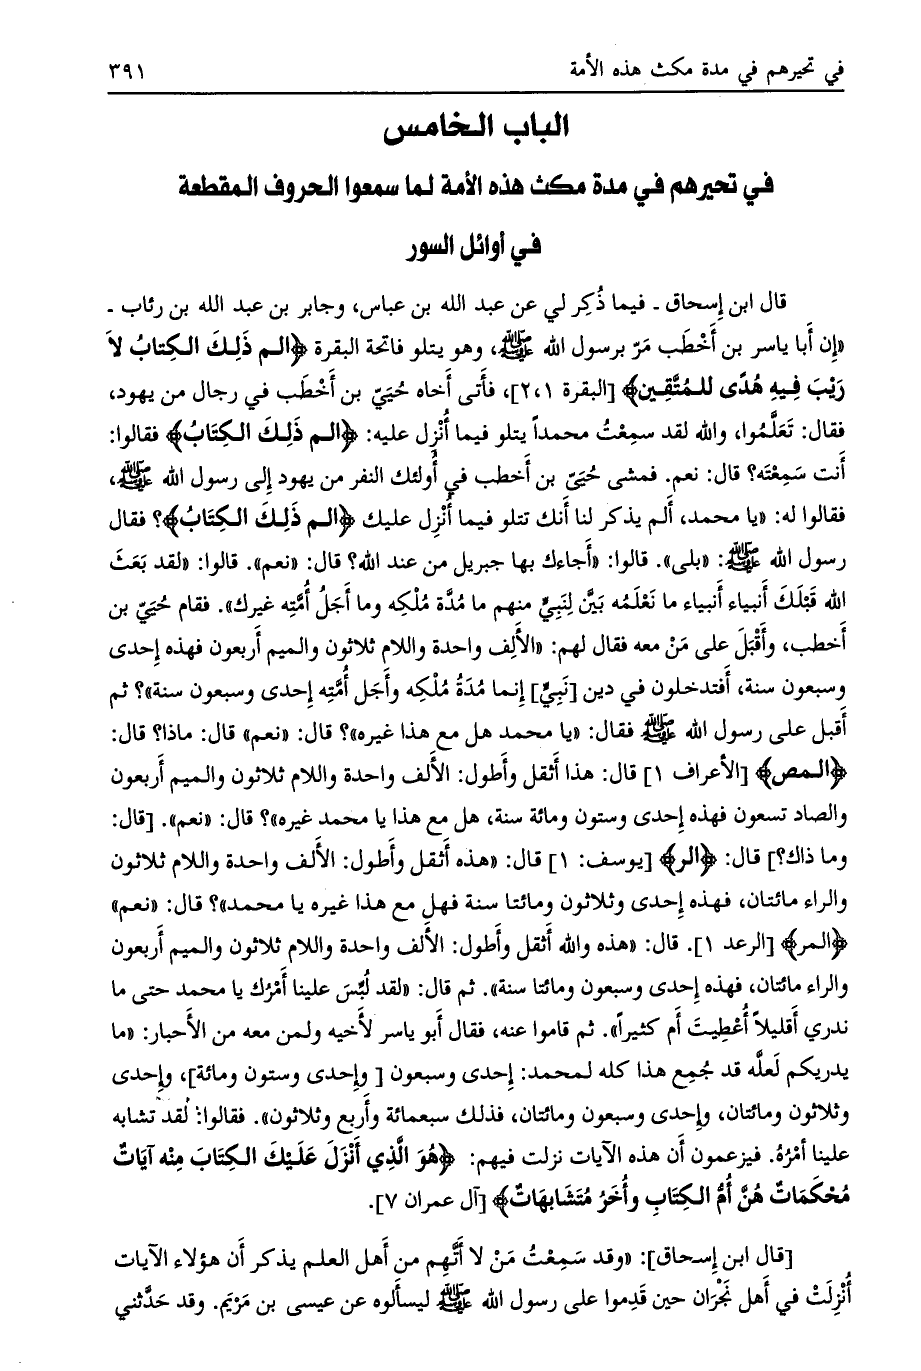 في تحيرهم في مدة مكث هذه الأمة ٣٩١
الباب الخامس
في تحيرهم في مدة مكث هذه الأمة لما سمعوا الحروف المقطعة
في أوائل السور
قال ابن إسحاق ـ فيما ذُكِر لي عن عبد الله بن عباس، وجابر بن عبد الله بن رئاب ـ
«إن أبا ياسر بن أَخْطَب مَرّ برسول الله ﷺ، وهو يتلو فاتحة البقرة ﴿الـم ذَلِكَ الكِتابُ لاَ
رَيْبَ فِيهِ هُدًى للمُتَّقِين﴾ [البقرة ٢،١]، فأتى أخاه حُيَيّ بن أَخْطَب في رجال من يهود،
فقال: تَعَلَّمُوا، والله لقد سمِعْتُ محمداً يتلو فيما أُنْزِل عليه: ﴿الـم ذَلِكَ الكِتَابُ﴾ فقالوا:
أنت سَمِعْتَه؟ قال: نعم. فمشى حُيَيّ بن أخطب في أُولئك النفر من يهود إلى رسول الله ﷺ،
فقالوا له: «يا محمد، أَلم يذكر لنا أَنك تتلو فيما أُنْزِل عليك ﴿الـم ذَلِكَ الكِتَابُ﴾؟ فقال
رسول الله ﷺ: «بلى». قالوا: «أَجاءك بها جبريل من عند الله؟ قال: «نعم». قالوا: «لقد بَعَثَ
الله قَبْلَكَ أنبياء أنبياء ما نَعْلَمُه بَيَّن لِنَبِيٍّ منهم ما مُدَّة مُلْكِه وما أَجَلُ أُمَّتِه غيرك». فقام حُيَيّ بن
أخطب، وأَقْبَلَ على مَنْ معه فقال لهم: «الأَلِف واحدة واللام ثلاثون والميم أربعون فهذه إحدى
وسبعون سنة، أفتدخلون في دين [نَبِيٍّ] إنما مُدَةُ مُلْكِه وأَجَل أُمَّتِه إحدى وسبعون سنة»؟ ثم
أقبل على رسول الله ﷺ فقال: «يا محمد هل مع هذا غيره»؟ قال: «نعم» قال: ماذا؟ قال:
﴿الـمص﴾ [الأعراف ١] قال: هذا أثقل وأطول: الألف واحدة واللام ثلاثون والميم أربعون
والصاد تسعون فهذه إحدى وستون ومائة سنة، هل مع هذا يا محمد غيره»؟ قال: «نعم». [قال:
وما ذاك؟] قال: ﴿الر﴾ [يوسف: ١] قال: «هذه أثقل وأطول: الألف واحدة واللام ثلاثون
والراء مائتان، فهذه إحدى وثلاثون ومائتا سنة فهل مع هذا غيره يا محمد»؟ قال: «نعم»
﴿المر﴾ [الرعد ١]. قال: «هذه والله أثقل وأطول: الألف واحدة واللام ثلاثون والميم أربعون
والراء مائتان، فهذه إحدى وسبعون ومائتا سنة». ثم قال: «لقد لُبِّسَ علينا أَمْرُك يا محمد حتى ما
ندري أقليلاً أُعْطِيتَ أم كثيراً». ثم قاموا عنه، فقال أبو ياسر لأخيه ولمن معه من الأحبار: «ما
يدريكم لَعلَّه قد جُمِع هذا كله لمحمد: إحدى وسبعون [وإحدى وستون ومائة]، وإحدى
وثلاثون ومائتان، وإحدى وسبعون ومائتان، فذلك سبعمائة وأربع وثلاثون». فقالوا: لقد تشابه
علينا أَمْرُهُ. فيزعمون أن هذه الآيات نزلت فيهم: ﴿هُوَ الَّذِي أَنْزَلَ عَلَيْكَ الكِتَابَ مِنْه آيَاتٌ
مُحْكَمَاتٌ هُنَّ أُمُّ الكِتَابِ وأُخَرُ مُتَشَابِهَاتٌ﴾ [آل عمران ٧].
[قال ابن إسحاق]: «وقد سَمِعْتُ مَنْ لا أَتَّهِم من أهل العلم يذكر أن هؤلاء الآيات
أُنْزِلَتْ في أهل نَجْرَان حين قَدِموا على رسول الله ﷺ ليسألوه عن عيسى بن مَرْيَم. وقد حَدَّثني